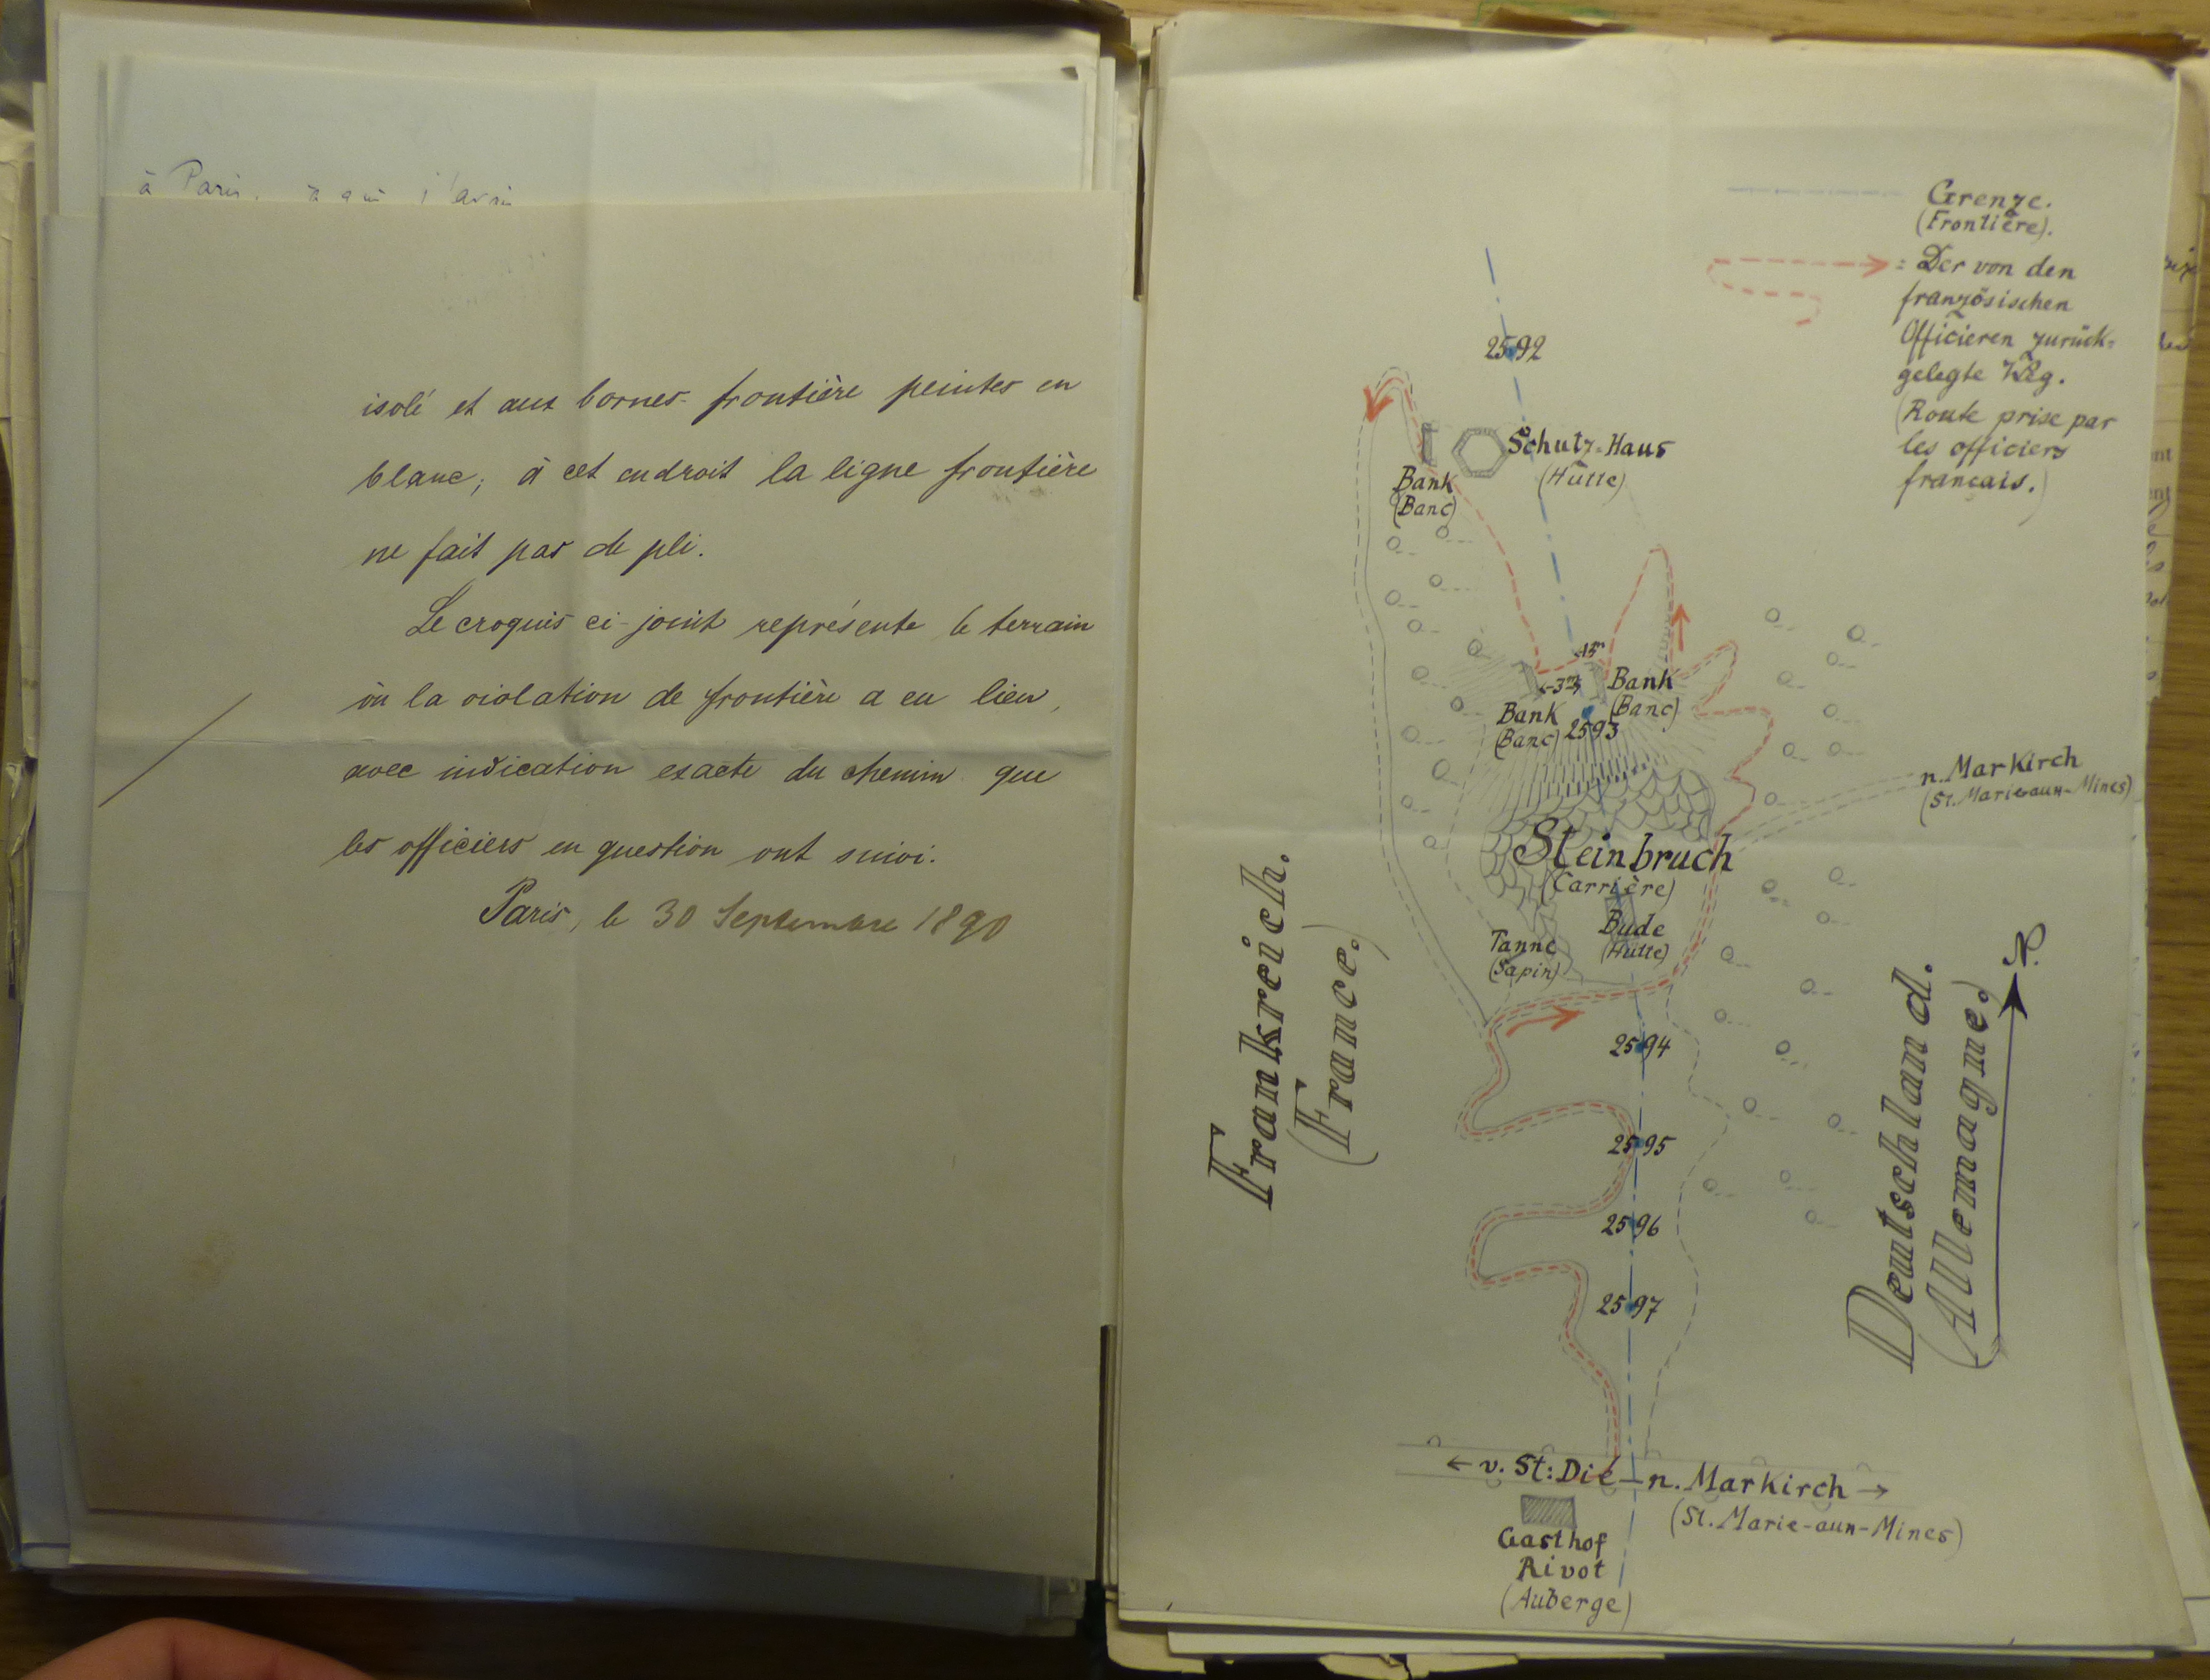 à Paris.
isolé et aux bornes-frontière peintes en
blanc; à cet endroit la ligne frontière
ne fait pas de pli.
Le croquis ci-joint représente le terrain
où la violation de frontière a eu lieu,
avec indication exacte du chemin que
les officiers en question ont suivi.
Paris, le 30 Septembre 1890
Grenze.
(Frontière).
= Der von den
französischen
Officieren zurück-
gelegte Weg.
(Route prise par
les officiers
français.)
2592
Schutz-Haus
(Hütte)
Bank
(Banc)
1m
3m
Bank
(Banc)
Bank
(Banc)
2593
n. Markirch
(St. Marie-aux-Mines)
Steinbruch
(Carrière)
Bude
(Hütte)
Tanne
(Sapin)
Frankreich.
(France.)
Deutschland.
(Allemagne.)
N.
2594
2595
2596
2597
← v. St: Dié – n. Markirch →
(St. Marie-aux-Mines)
Gasthof
Rivot
(Auberge)